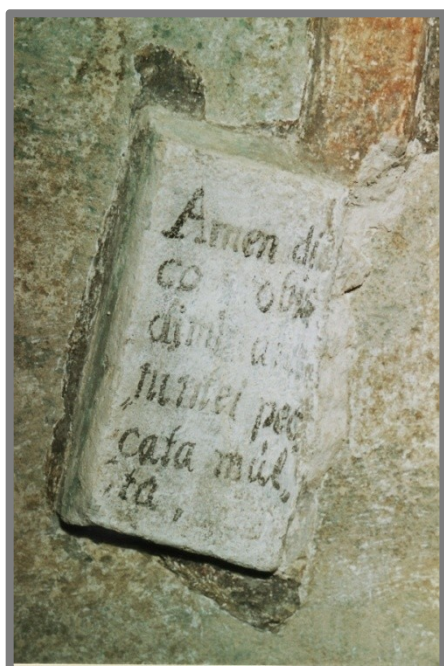 Amen di
co vobis
dimit
tuntei pec
cata múl,
ta,